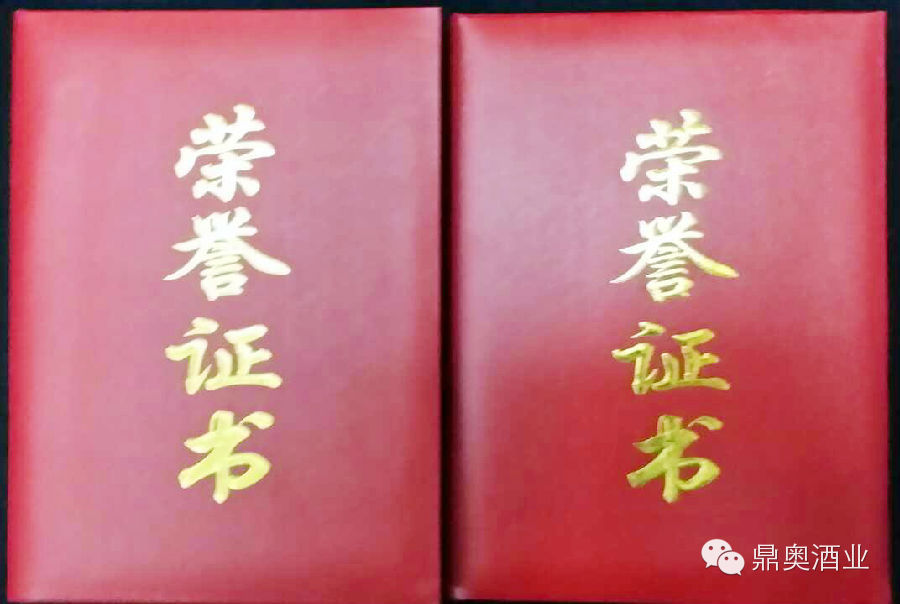 荣誉证书
荣誉证书
鼎奥酒业